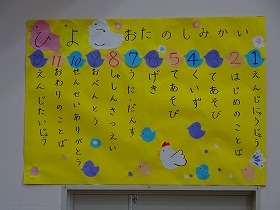 ひよこ おたのしみかい
1 えんじにゅうじょう
2 はじめのことば
3 てあそび
4 くいず
5 てあそび
6 げき
7 うた・だんす
8 しゃしんさつえい
9 おべんとう
10 せんせいありがとう
11 おわりのことば
12 えんじたいじょう